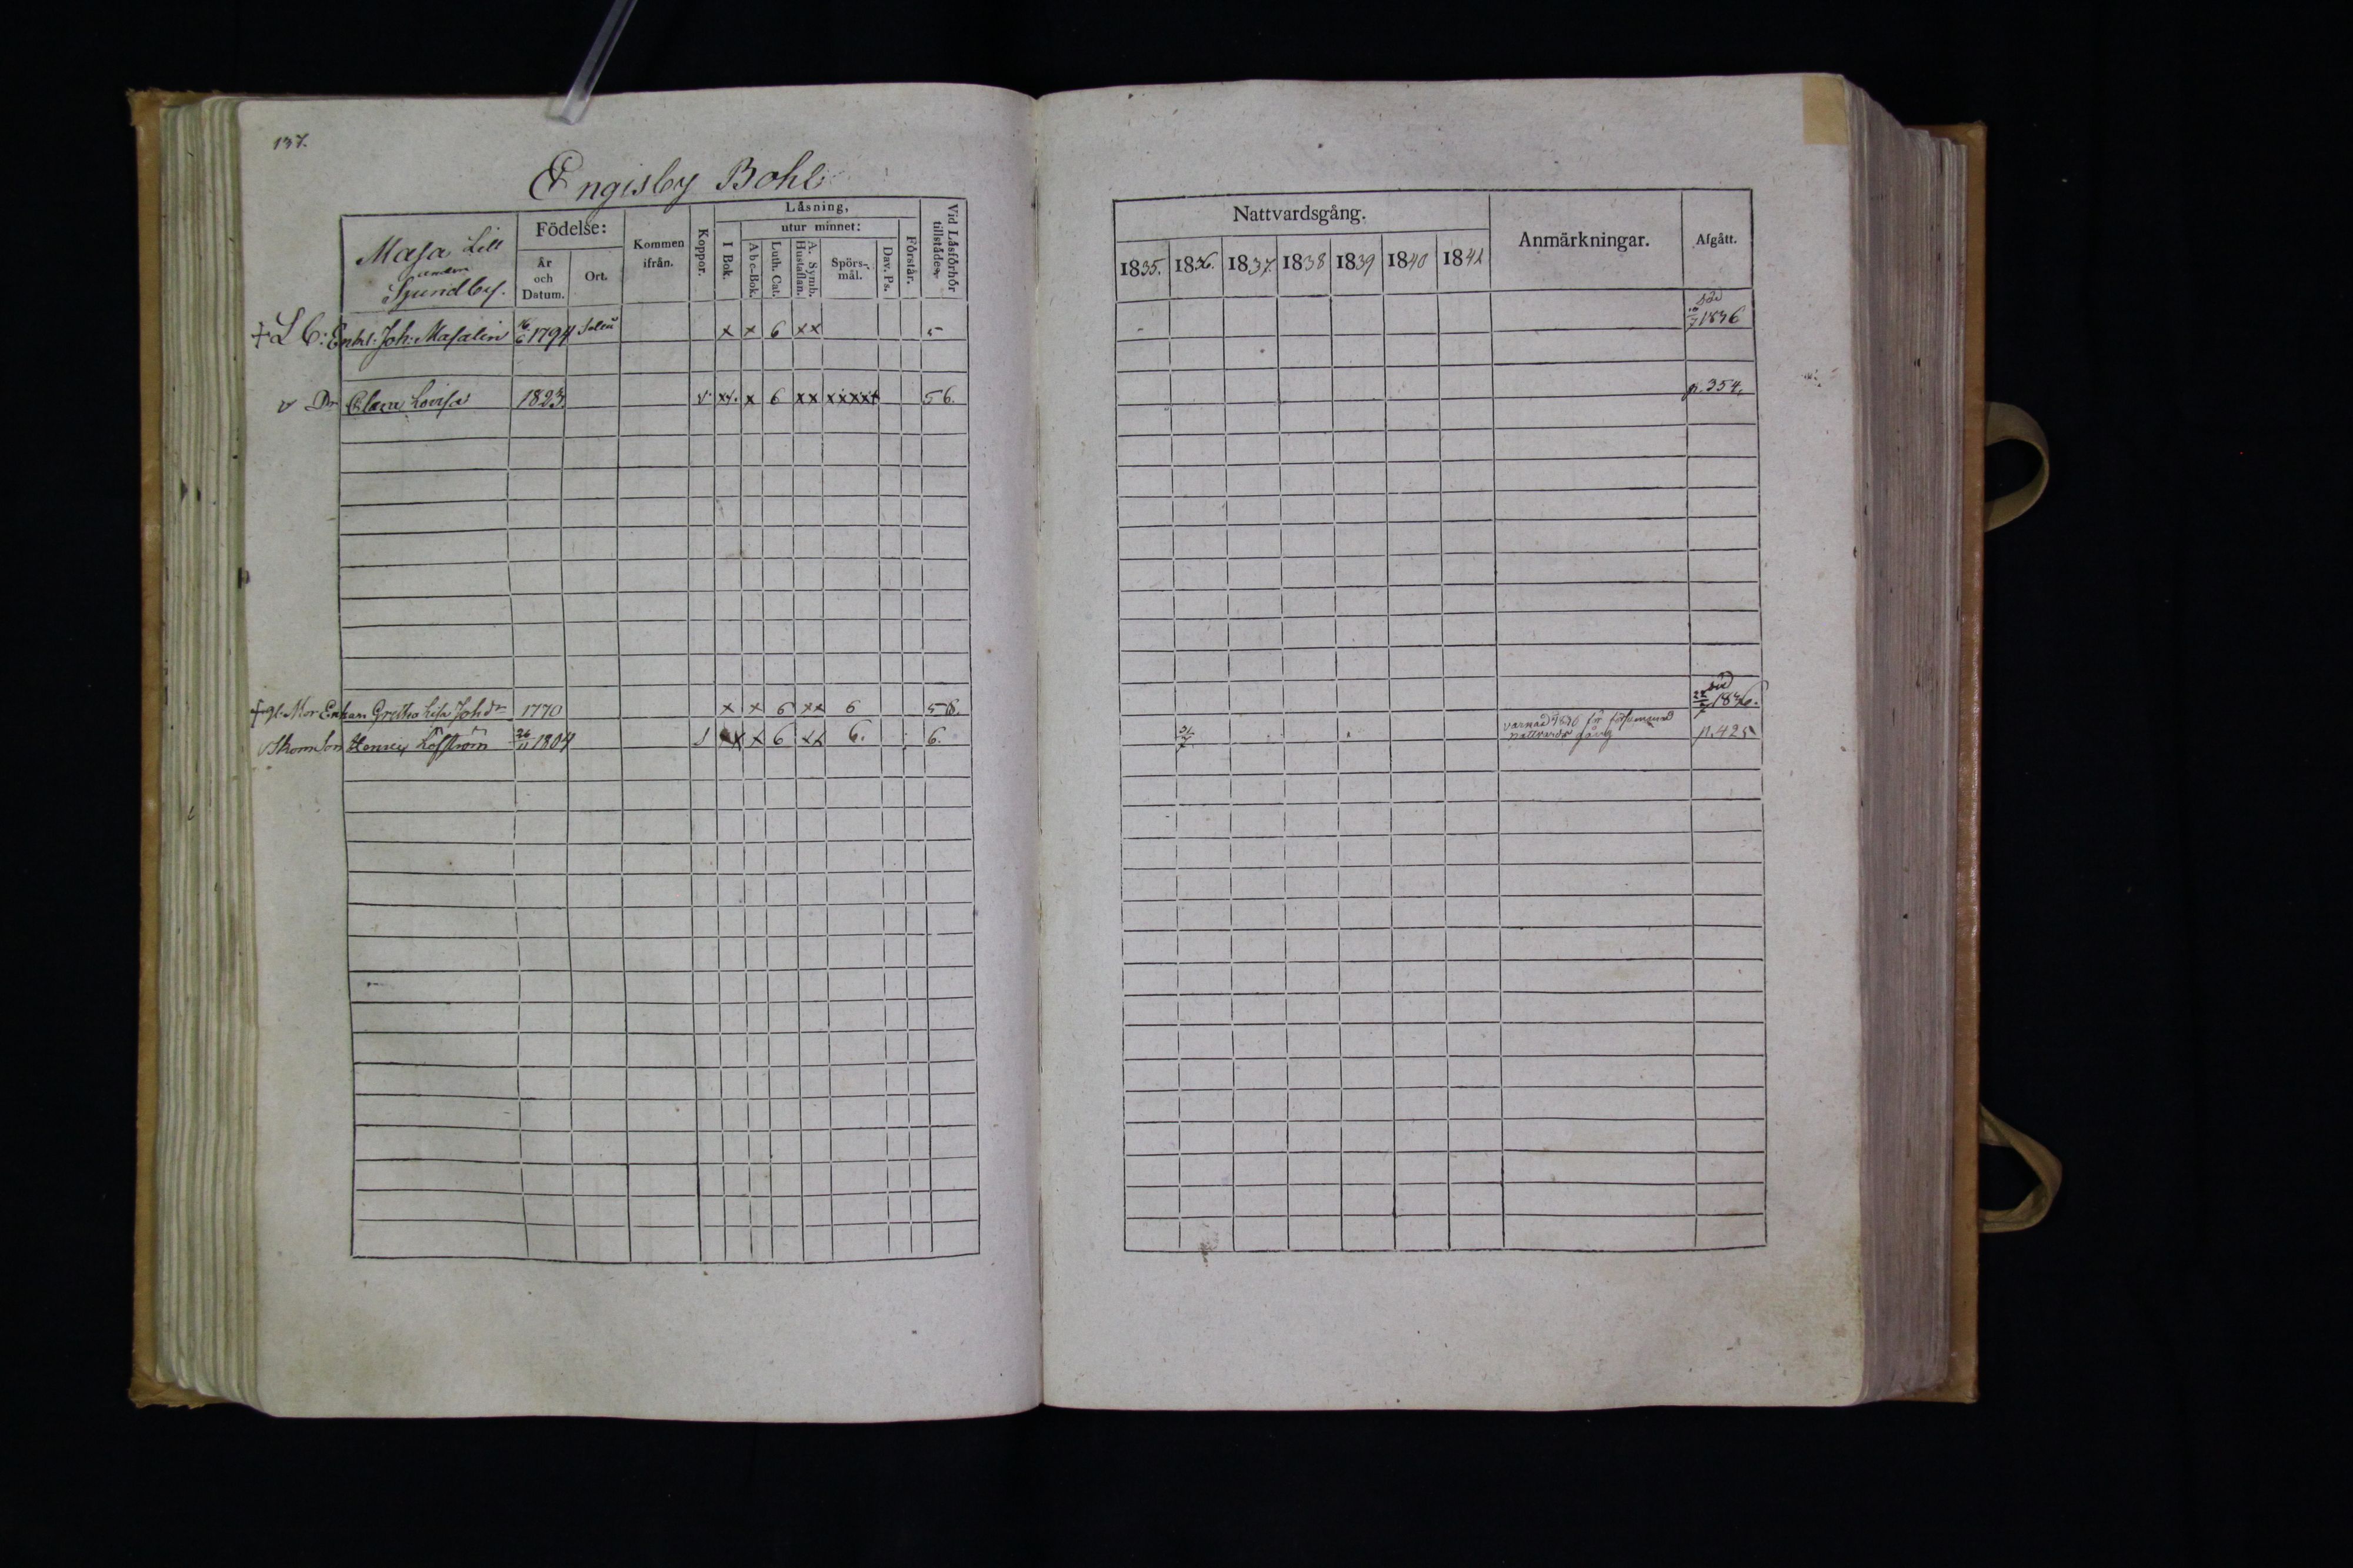 137.
Engisby Bohl
Masa Lill
Sjundby.
Födelse:
År och Datum.
Ort.
Kommen ifrån.
Koppor.
Läsning,
I Bok.
utur minnet:
Abc-Bok.
Luth. Cat.
A. Symb. Hustaflan.
Spörsmål.
Dav. Ps.
Förstår.
Vid Läsförhör tillstädes
Nattvardsgång.
1835. 1836. 1837. 1838 1839 1840 1841
Anmärkningar.
Afgått.
+ L. C: Enkl. Joh: Masalin 16/6 1794 x x 6 xx 5 död 1836
v Dr Clara Lovisa 1823. v. xx. x 6 xx xxxxx 56. p. 354.
+ gl. Mor Enkan Gretha Lisa Johdr 1770 x x 6 xx 6 58. död 22/7 1836.
v Skom Son Henric Löfström 26/11 1804 xx x 6 xx 6. 6. 31/7 varnad 1836 för försummad nattvards gång p. 425